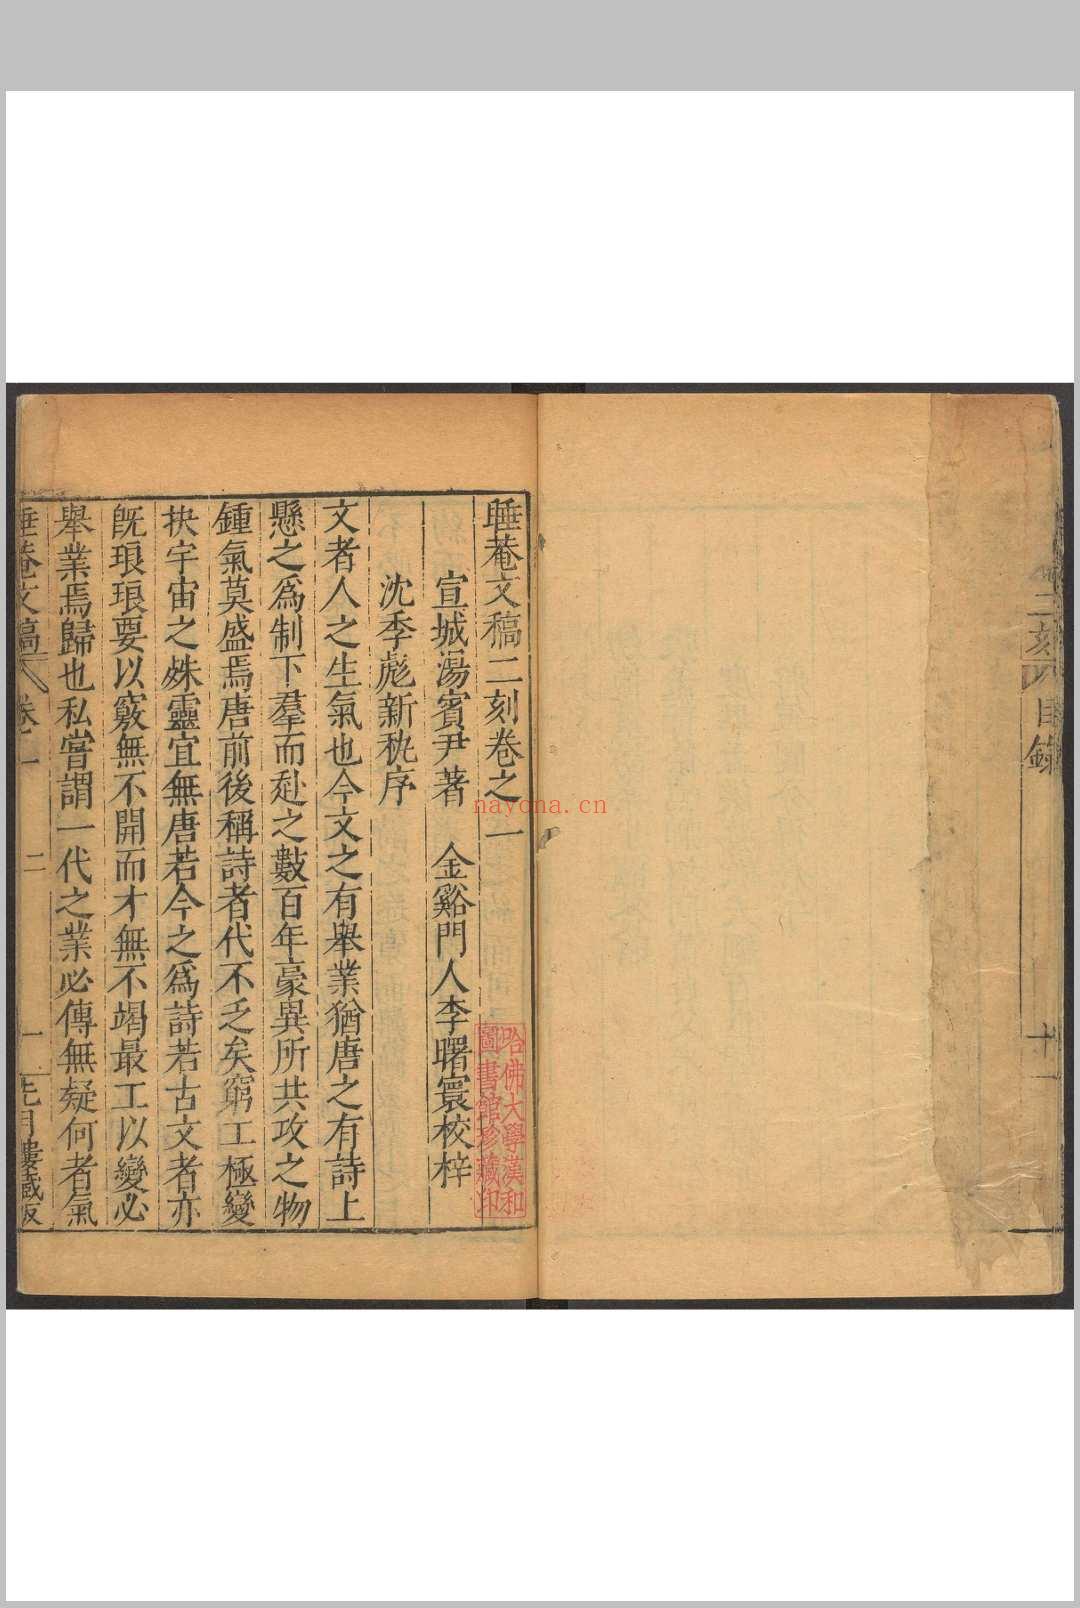 二刻
目錄
十一
睡菴文稿二刻卷之一
宣城湯賓尹著 金谿門人李曙寰校梓
沈季彪新秇序
文者人之生氣也今文之有舉業猶唐之有詩上
懸之爲制下羣而赴之數百年豪異所共攻之物
鍾氣莫盛焉唐前後稱詩者代不乏矣窮工極變
抉宇宙之姝靈宜無唐若今之爲詩若古文者亦
旣琅琅要以竅無不開而才無不竭最工以變必
舉業焉歸也私嘗謂一代之業必傳無疑何者氣
睡菴文稿
卷一
二
一
先月樓藏版
哈佛大學漢和
圖書館珍藏印
nayona.cn